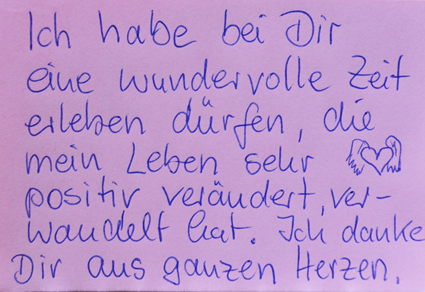 Ich habe bei Dir
eine wundervolle Zeit
erleben dürfen, die
mein Leben sehr
positiv verändert, ver-
wandelt hat. Ich danke
Dir aus ganzen Herzen.